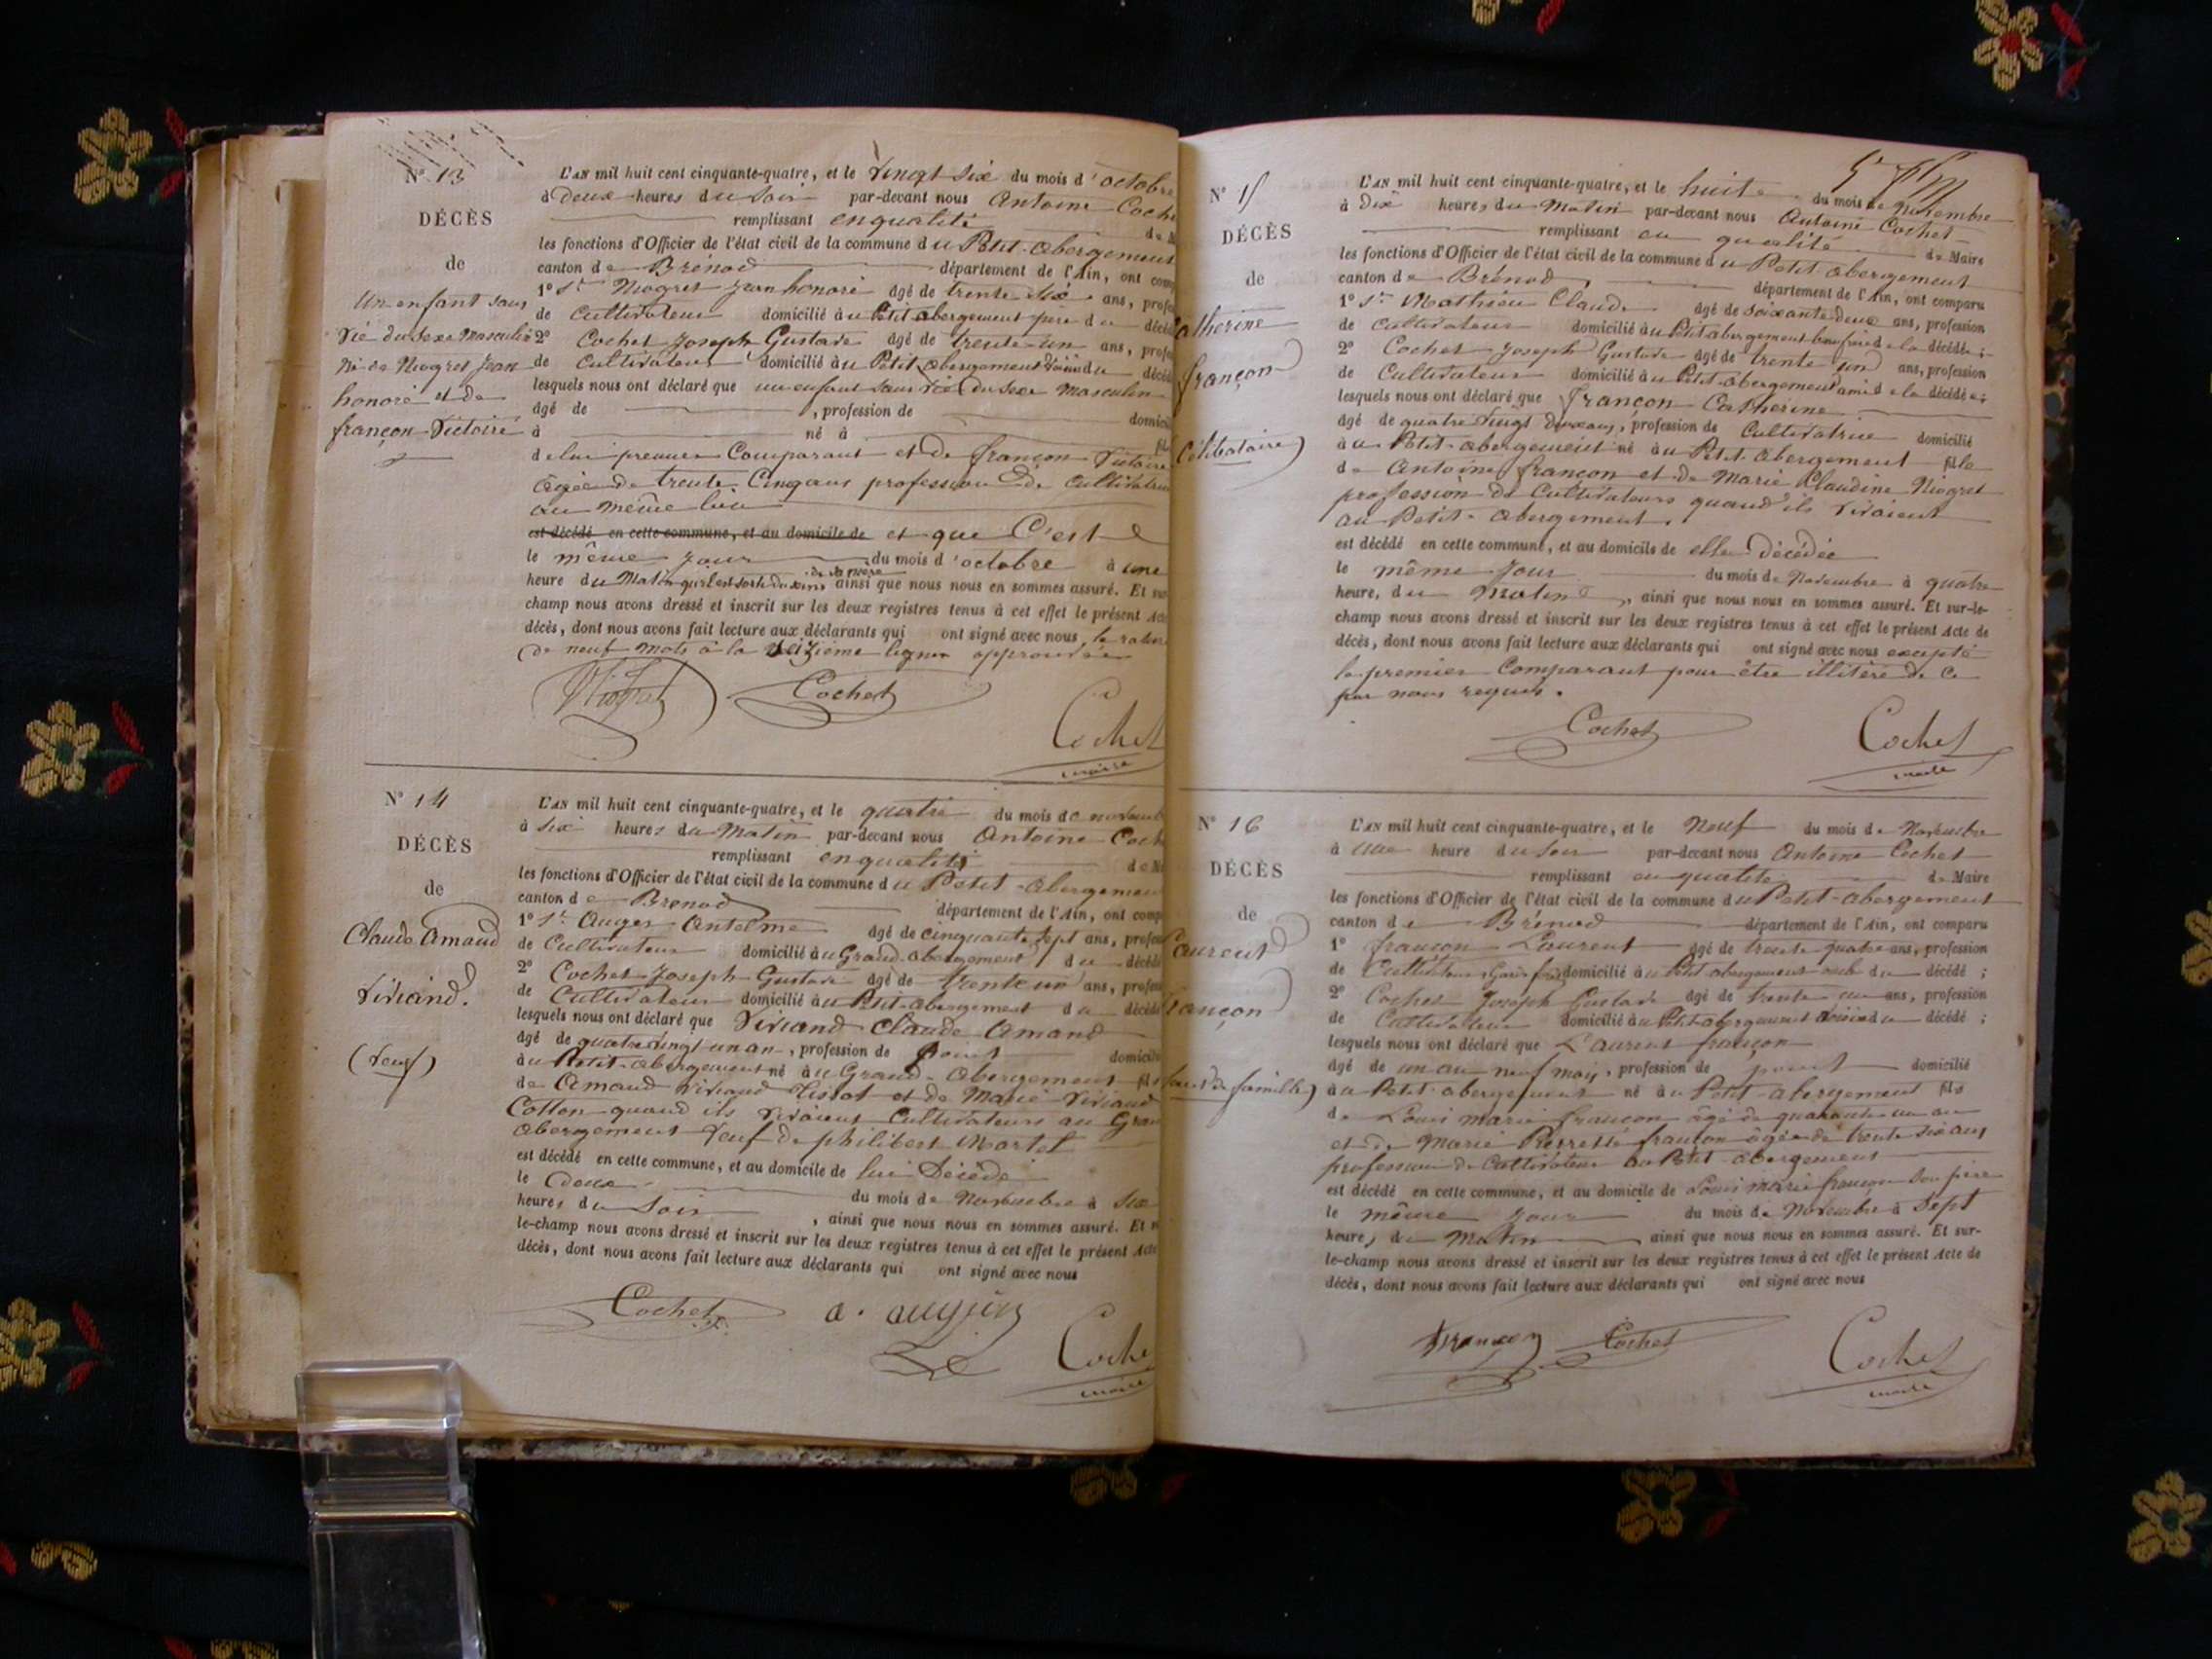 N° 13
DÉCÈS
de
Un enfant sans
vie du sexe Masculin
né de Niogret Jean
honoré et de
françon Victoire
L'AN mil huit cent cinquante-quatre, et le vingt six du mois d'octobre
à deux heures du soir par-devant nous Antoine Coche
remplissant en qualité de M
les fonctions d'Officier de l'état civil de la commune du Petit-abergement
canton de Brénod département de l'Ain, ont comp
1° Sr Niogret Jean honoré âgé de trente six ans, profes
de Cultivateur domicilié au Petit abergement père du décédé
2° Cochet Joseph Gustave âgé de trente-un ans, profes
de Cultivateur domicilié au Petit abergement voisin du décédé
lesquels nous ont déclaré que un enfant sans vie du sexe masculin
âgé de , profession de domicil
à né à fils
de lui premier Comparant et de françon Victoire
âgée de trente Cinq ans profession de Cultivatrice
au même lieu
est décédé en cette commune, et au domicile de et que C'est
le même jour du mois d'octobre à une
heure du Matin qu'il est sorti du sein de sa mère ainsi que nous nous en sommes assuré. Et sur
champ nous avons dressé et inscrit sur les deux registres tenus à cet effet le présent Acte
décès, dont nous avons fait lecture aux déclarants qui ont signé avec nous, la rature
de neuf mots à la seizième ligne approuvée
Niogret Cochet
Cochet
maire
N° 14
DÉCÈS
de
Claude Amand
Viviand.
(Veuf)
L'AN mil huit cent cinquante-quatre, et le quatre du mois de novemb
à six heures du Matin par-devant nous Antoine Coch
remplissant en qualité de M
les fonctions d'Officier de l'état civil de la commune du Petit-abergement
canton de Brenod département de l'Ain, ont comp
1° Sr Auger Antelme âgé de cinquante sept ans, profess
de Cultivateur domicilié au Grand-abergement du décédé
2° Cochet Joseph Gustave âgé de trente un ans, profess
de Cultivateur domicilié au Petit-abergement du décédé
lesquels nous ont déclaré que Viviand Claude Amand
âgé de quatre vingt un an, profession de point domicilié
au Petit-abergement né au Grand-abergement fils
de Amand Viviand Tissot et de Marie Viviand
Cotton quand ils vivaient Cultivateurs au Gran
abergement Veuf de philibert Martel
est décédé en cette commune, et au domicile de lui Décédé
le deux du mois de Novembre à six
heures du Soir , ainsi que nous nous en sommes assuré. Et
le-champ nous avons dressé et inscrit sur les deux registres tenus à cet effet le présent Acte
décès, dont nous avons fait lecture aux déclarants qui ont signé avec nous
Cochet a.
Coche
maire
N° 15
DÉCÈS
de
Catherine
françon
(Célibataire)
L'AN mil huit cent cinquante-quatre, et le huit du mois de Novembre
à Dix heures du Matin par-devant nous Antoine Cochet
remplissant en qualité de Maire
les fonctions d'Officier de l'état civil de la commune du Petit abergement
canton de Brénod département de l'Ain, ont comparu
1° Sr Mathieu Claude âgé de soixante deux ans, profession
de Cultivateur domicilié au Petit abergement beau frère de la décédée ;
2° Cochet Joseph Gustave âgé de trente un ans, profession
de Cultivateur domicilié au Petit-abergement ami de la décédée ;
lesquels nous ont déclaré que françon Catherine
âgé de quatre vingt deux ans, profession de Cultivatrice domicilié
au Petit-abergement né au Petit-abergement fille
de Antoine françon et de Marie Claudine Niogret
profession de Cultivateurs quand ils vivaient
au Petit-abergement,
est décédé en cette commune, et au domicile de elle décédée
le même Jour du mois de Novembre à quatre
heure, du Matin , ainsi que nous nous en sommes assuré. Et sur-le-
champ nous avons dressé et inscrit sur les deux registres tenus à cet effet le présent Acte de
décès, dont nous avons fait lecture aux déclarants qui ont signé avec nous excepté
le premier Comparant pour être illitéré de ce
par nous requis.
Cochet
Cochet
maire
N° 16
DÉCÈS
de
Laurent
françon
L'AN mil huit cent cinquante-quatre, et le Neuf du mois de Novembre
à une heure du soir par-devant nous Antoine Cochet
remplissant en qualité de Maire
les fonctions d'Officier de l'état civil de la commune du Petit-abergement
canton de Brénod département de l'Ain, ont comparu
1° françon Laurent âgé de trente quatre ans, profession
de Cultivateur domicilié au Petit abergement oncle du décédé ;
2° Cochet Joseph Gustave âgé de trente un ans, profession
de Cultivateur domicilié au Petit-abergement voisin du décédé ;
lesquels nous ont déclaré que Laurent françon
âgé de un an neuf moy, profession de point domicilié
au Petit-abergement né au Petit-abergement fils
de Louis marie françon âgé de quarante un an
et de Marie Pierrette françon âgée de trente six ans
profession de Cultivateur au Petit-abergement
est décédé en cette commune, et au domicile de Louis marie françon son père
le même Jour du mois de Novembre à Sept
heure, du Matin ainsi que nous nous en sommes assuré. Et sur-
le-champ nous avons dressé et inscrit sur les deux registres tenus à cet effet le présent Acte de
décès, dont nous avons fait lecture aux déclarants qui ont signé avec nous
françon Cochet
Cochet
maire